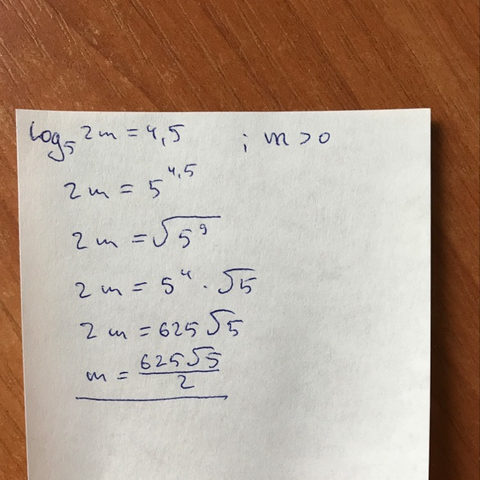 log₅ 2m = 4,5 ; m > 0
2m = 5^4,5
2m = √5⁹
2m = 5⁴ · √5
2m = 625√5
m = 625√5/2